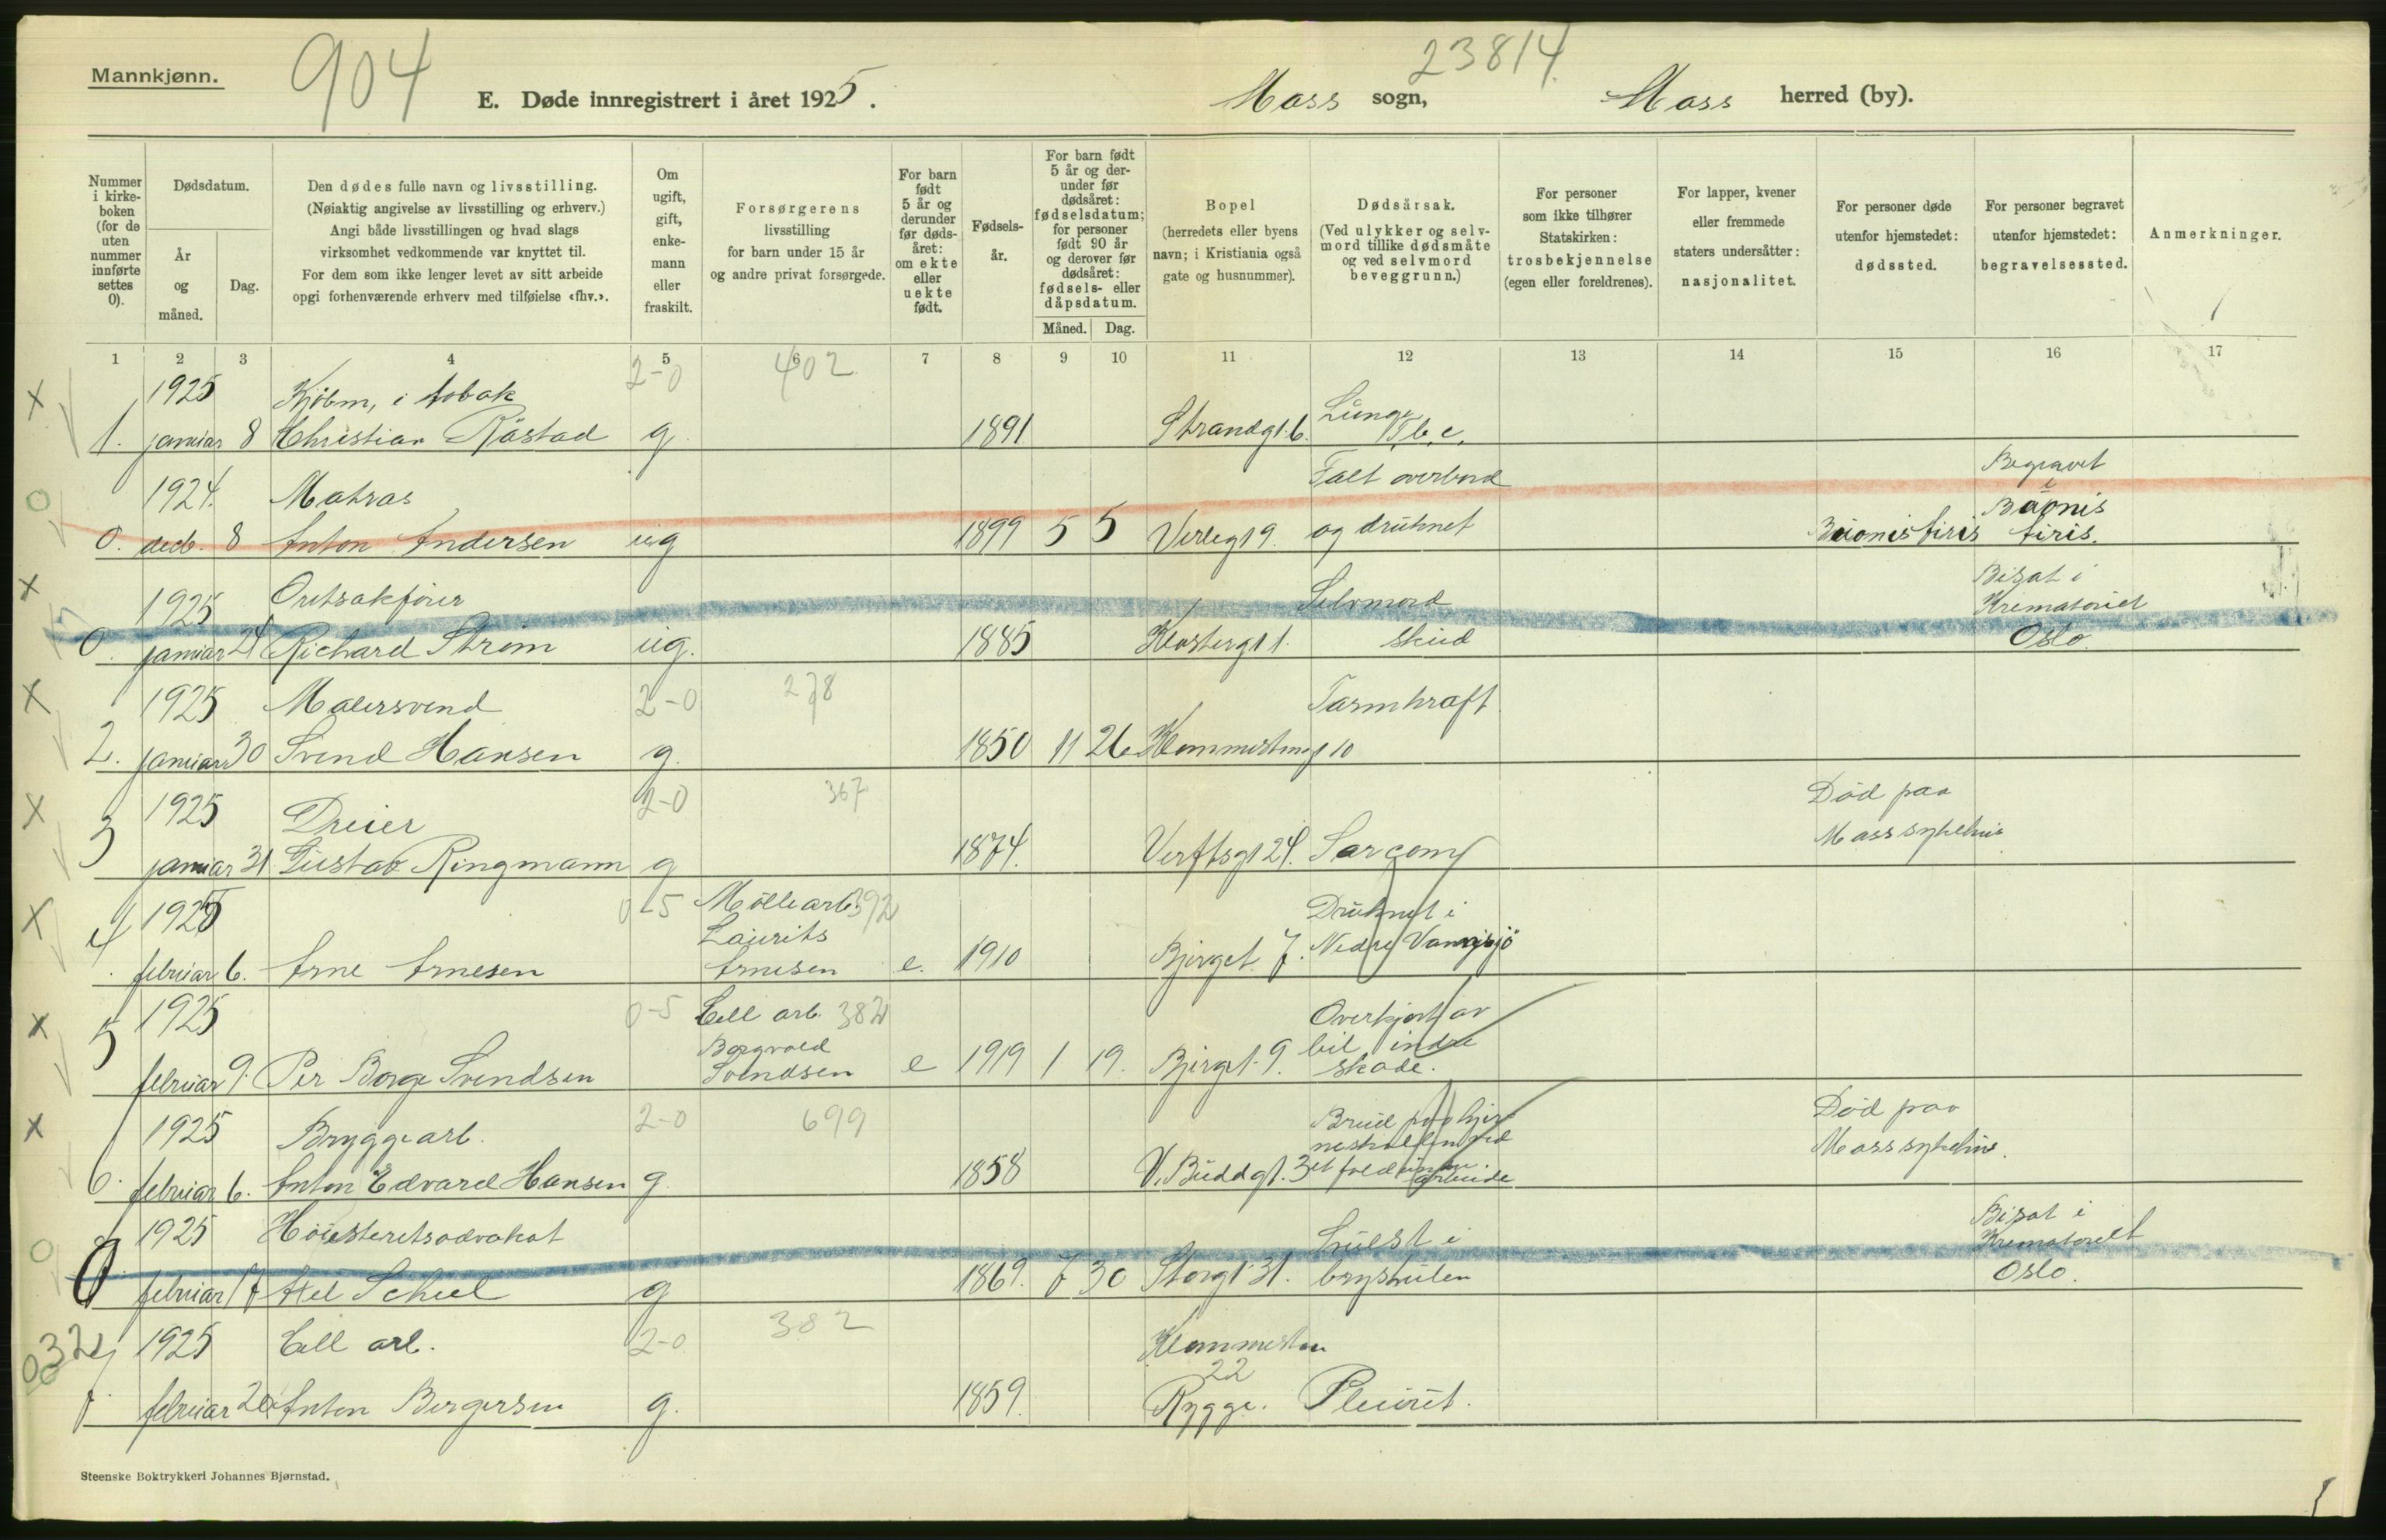 Mannkjønn.
904
23814.
E. Døde innregistrert i året 1925.
Moss sogn, Moss herred (by).
Nummer i kirke-boken (for de uten nummer innførte settes 0).
Dødsdatum.
År og måned.
Dag.
Den dødes fulle navn og livsstilling.
(Nøiaktig angivelse av livsstilling og erhverv.)
Angi både livsstillingen og hvad slags
virksomhet vedkommende var knyttet til.
For dem som ikke lenger levet av sitt arbeide
opgi forhenværende erhverv med tilføielse «fhv.».
Om ugift, gift, enke-mann eller fraskilt.
Forsørgerens
livsstilling
for barn under 15 år
og andre privat forsørgede.
For barn født 5 år og derunder før døds-året: om ekte eller uekte født.
Fødsels-år.
For barn født 5 år og der-under før dødsåret: fødselsdatum; for personer født 90 år og derover før dødsåret: fødsels- eller dåpsdatum.
Måned. Dag.
Bopel
(herredets eller byens
navn; i Kristiania også
gate og husnummer).
Dødsårsak.
(Ved ulykker og selv-
mord tillike dødsmåte
og ved selvmord
beveggrunn.)
For personer
som ikke tilhører
Statskirken:
trosbekjennelse
(egen eller foreldrenes).
For lapper, kvener
eller fremmede
staters undersåtter:
nasjonalitet.
For personer døde
utenfor hjemstedet:
dødssted.
For personer begravet
utenfor hjemstedet:
begravelsessted.
Anmerkninger.
1 2 3 4 5 6 7 8 9 10 11 12 13 14 15 16 17
1925 Kjøbm, i tobak 2-0 402 Lunge
1. januar 8 Christian Råstad g 1891 Strandgt. 6. T.b.c.
1924. Matros Falt overbord Begravet
0. decb. 8 Anton Andersen ug 1899 5 5 Verlegt 9. og druknet
1925 Overretsakfører Selvmord Bisat i Krematoriet
0. januar 24 Richard Strøm ug. 1885 Klostergt 1. skud Oslo.
1925 Malersvend 2-0 278 Tarmkræft
2. januar 30 Svend Hansen g. 1850 11 26 10
1925 Dreier 2-0 367 Død paa
3 januar 31 Gustav Ringmann g 1874. Verftsgt 24. Sarcom Moss sykehus
1925 0-5 Møllearb. 392 Druknet i
4. februar 6. Arne Arnesen Laurits Arnesen e. 1910 7. Nedre Vansjø
1925 0-5 Cell arb. 382 Overkjørt av
5 februar 9. Per Borge Svendsen Borgvald Svendsen e 1919 1 19. 9. bil indre skade.
1925 Bryggearb. 2-0 699 Død paa
6. februar 6. Anton Edvard Hansen g. 1858 V. Buddgt. 3 arbeide Moss sykehus.
1925 Høiesteretsadvokat Svulst i Bisat i Krematoriet
0 februar 17 Axel Scheel g 1869. 7 30 Storgt 31. brysthulen Oslo.
1925 Cell arb. 2-0 382
7. februar 20 Anton Bergersen g. 1859. 22 Rygge. Pleurit.
Steenske Boktrykkeri Johannes Bjørnstad.